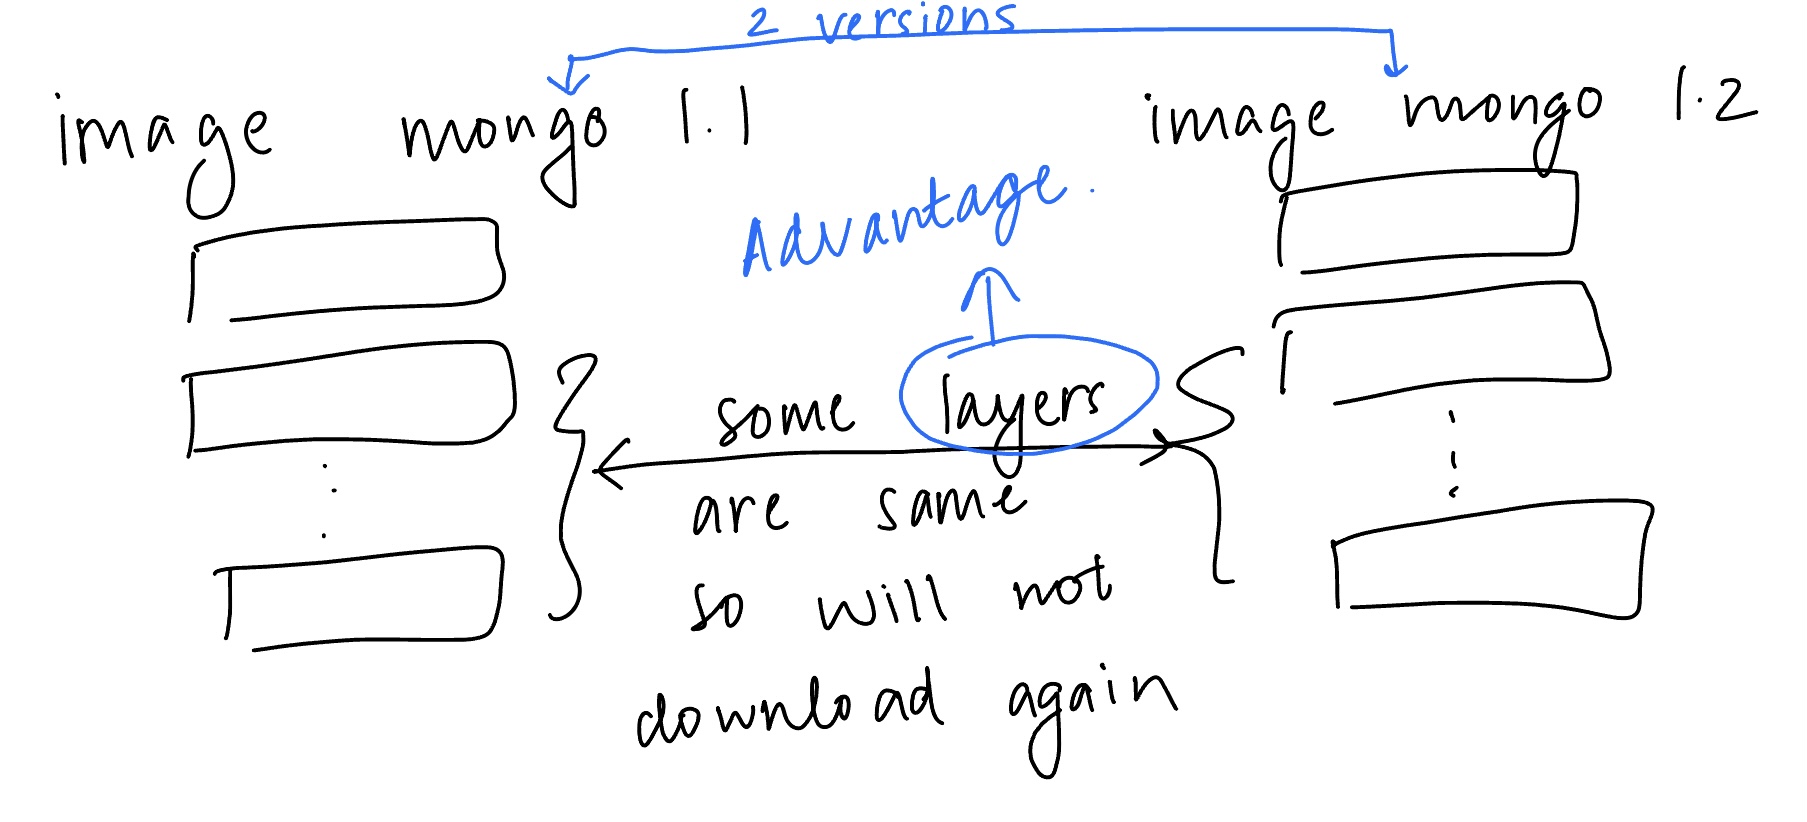 2 versions
image mongo 1.1
image mongo 1.2
Advantage.
some layers
are same
so will not
download again